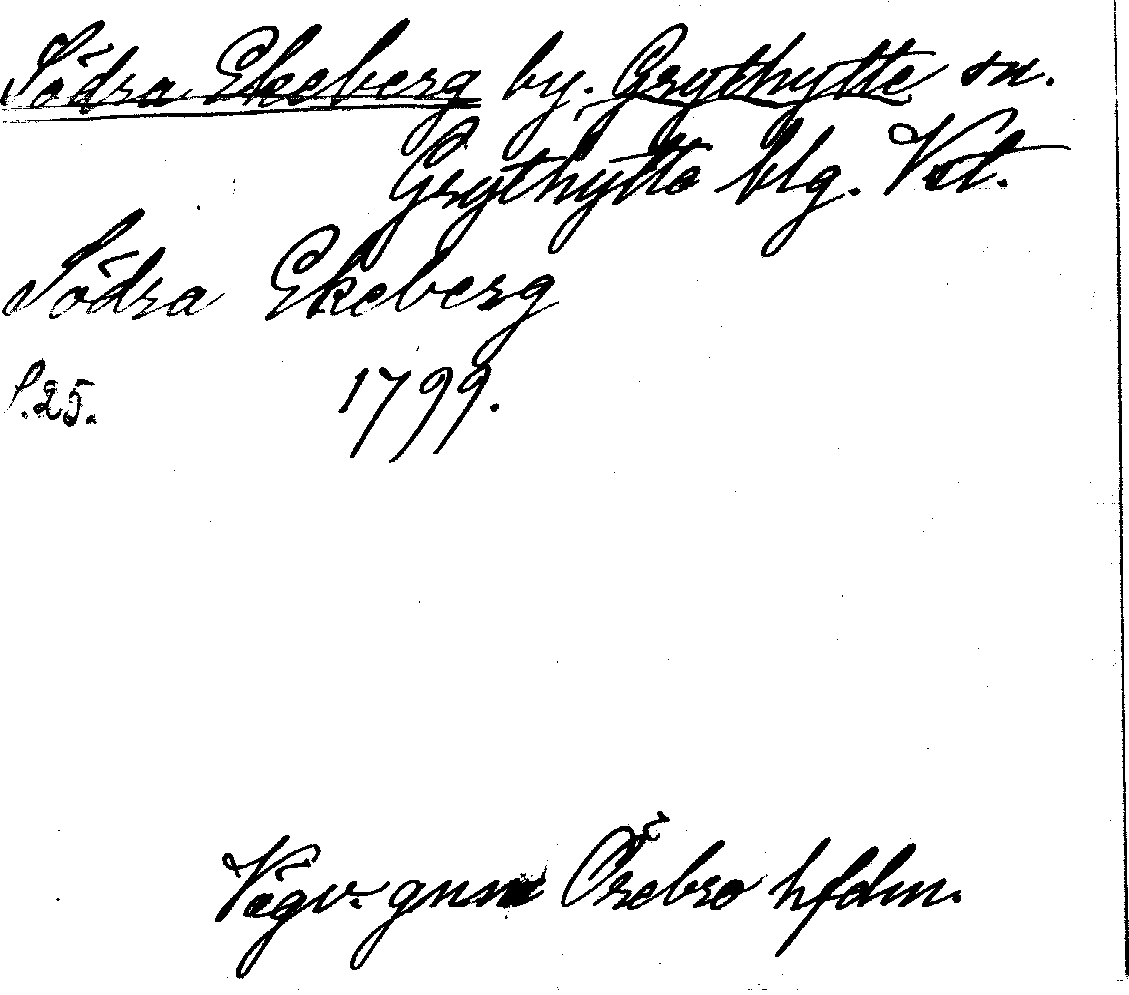 Södra Ekeberg by. Grythytte sn.
Grythytte blg. Vstl.
Södra Ekeberg
S.25. 1799.
Vägv. gnm Örebro hfdm.